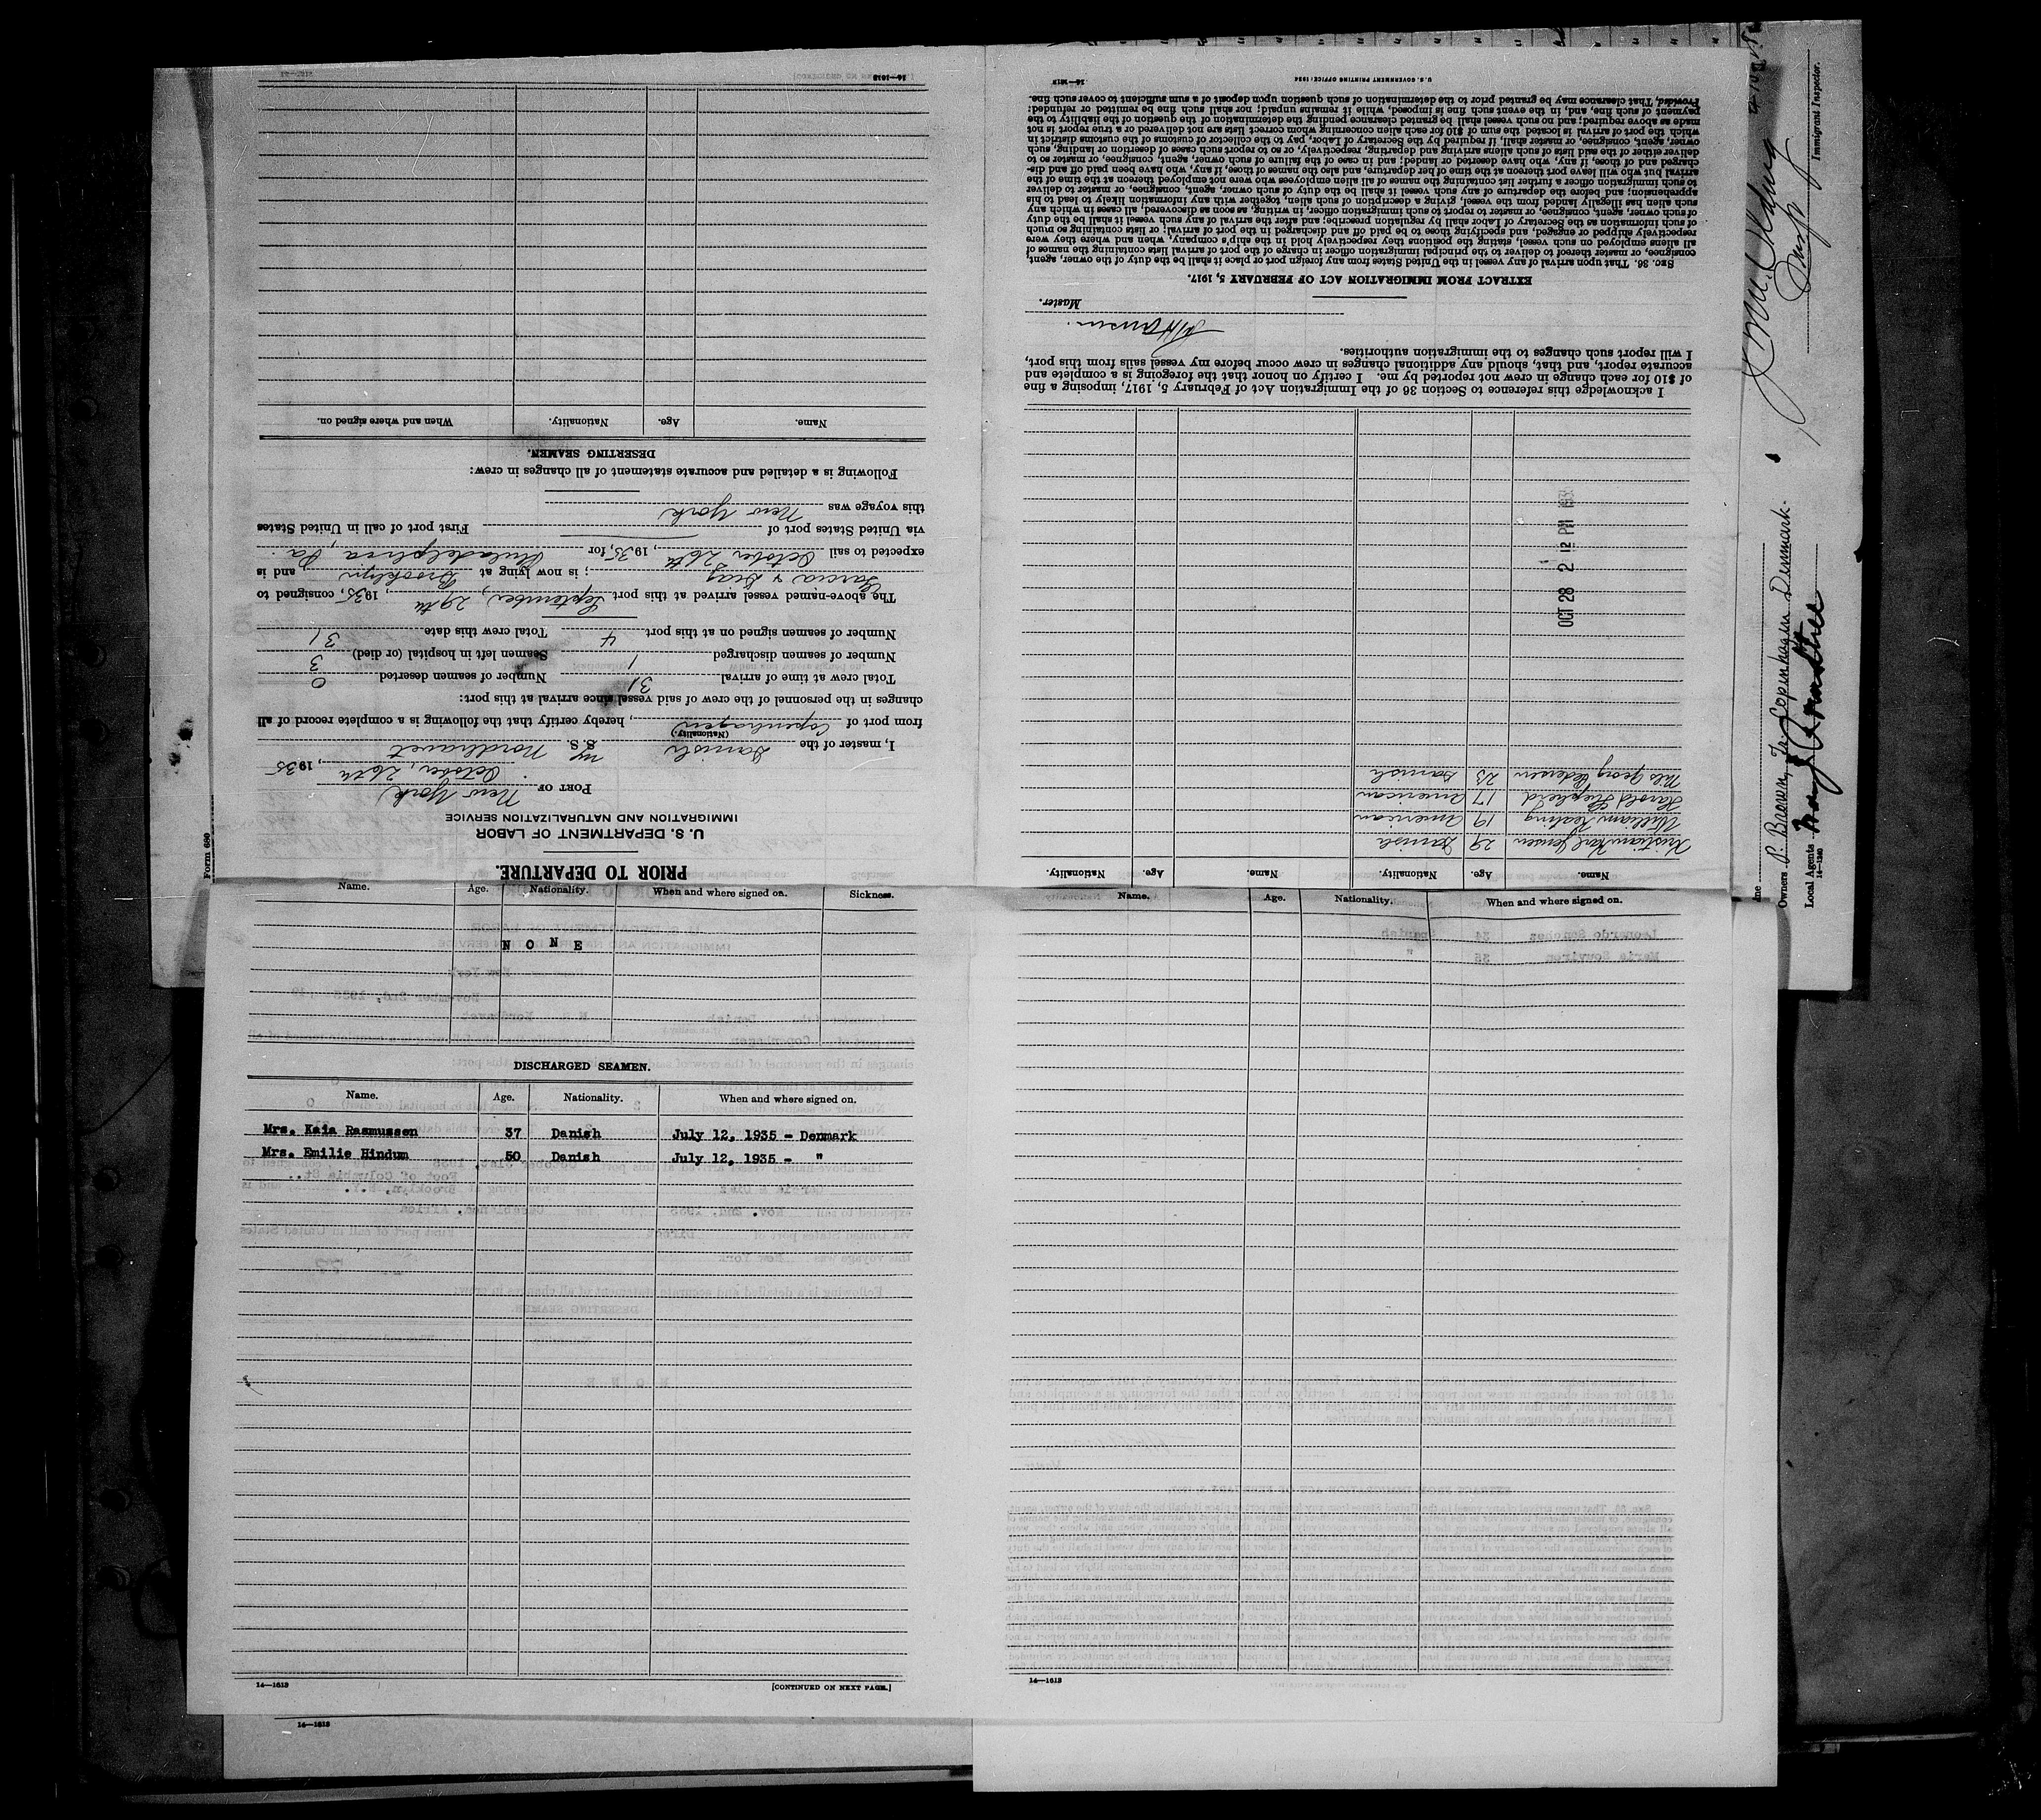 Form 680
PRIOR TO DEPARTURE.
U. S. DEPARTMENT OF LABOR
IMMIGRATION AND NATURALIZATION SERVICE
PORT OF New York
October, 26th, 1935
I, master of the Danish S. S. Nordhavet
(Nationality.)
from port of Copenhagen, hereby certify that the following is a complete record of all
changes in the personnel of the crew of said vessel since arrival at this port:
Total crew at time of arrival 31 Number of seamen deserted 0
Number of seamen discharged 1 Seamen left in hospital (or died) 3
Number of seamen signed on at this port 4 Total crew this date 31
The above-named vessel arrived at this port September, 29th, 1935, consigned to
Garcia & Diaz; is now lying at Brooklyn, and is
expected to sail October 26th, 1935, for Philadelphia, Pa.
via United States port of First port of call in United States
this voyage was New York
Following is a detailed and accurate statement of all changes in crew:
DESERTING SEAMEN.
Name. Age. Nationality. When and where signed on.
14—1613
Name. Age. Nationality. Name. Age. Nationality.
Kristian Karl Jensen 29 Danish
William Keating 19 American
Harold Shepherd 17 American
Nils Georg Pedersen 23 Danish
OCT 28 2 12 PM 1935
I acknowledge this reference to Section 36 of the Immigration Act of February 5, 1917, imposing a fine
of $10 for each change in crew not reported by me. I certify on honor that the foregoing is a complete and
accurate report, and that, should any additional changes in crew occur before my vessel sails from this port,
I will report such changes to the immigration authorities.
Master.
EXTRACT FROM IMMIGRATION ACT OF FEBRUARY 5, 1917.
SEC. 36. That upon arrival of any vessel in the United States from any foreign port or place it shall be the duty of the owner, agent,
consignee, or master thereof to deliver to the principal immigration officer in charge of the port of arrival lists containing the names of
all aliens employed on such vessel, stating the positions they respectively hold in the ship's company, when and where they were
respectively shipped or engaged, and specifying those to be paid off and discharged in the port of arrival; or lists containing so much
of such information as the Secretary of Labor shall by regulation prescribe; and after the arrival of any such vessel it shall be the duty
of such owner, agent, consignee, or master to report to such immigration officer, in writing, as soon as discovered, all cases in which any
such alien has illegally landed from the vessel, giving a description of such alien, together with any information likely to lead to his
apprehension; and before the departure of any such vessel it shall be the duty of such owner, agent, consignee, or master to deliver
to such immigration officer a further list containing the names of all alien employees who were not employed thereon at the time of the
arrival but who will leave port thereon at the time of her departure, and also the names of those, if any, who have been paid off and dis-
charged and of those, if any, who have deserted or landed; and in case of the failure of such owner, agent, consignee, or master so to
deliver either of the said lists of such aliens arriving and departing, respectively, or so to report such cases of desertion or landing, such
owner, agent, consignee, or master shall, if required by the Secretary of Labor, pay to the collector of customs of the customs district in
which the port of arrival is located the sum of $10 for each alien concerning whom correct lists are not delivered or a true report is not
made as above required; and no such vessel shall be granted clearance pending the determination of the question of the liability to the
payment of such fine, and, in the event such fine is imposed, while it remains unpaid; nor shall such fine be remitted or refunded:
Provided, That clearance may be granted prior to the determination of such question upon deposit of a sum sufficient to cover such fine.
U. S. GOVERNMENT PRINTING OFFICE: 1934
Immigrant Inspector.
Owners P. Brown, Jr. Copenhagen Denmark.
Local Agents
14—1240
Name. Age. Nationality. When and where signed on. Sickness.
NONE
DISCHARGED SEAMEN.
Name. Age. Nationality. When and where signed on.
Mrs. Kaia Rasmussen 37 Danish July 12, 1935 - Denmark
Mrs. Emilie Hindum 50 Danish July 12, 1935 - "
14—1613
[CONTINUED ON NEXT PAGE.]
14—1613
Name. Age. Nationality. When and where signed on.
14—1613